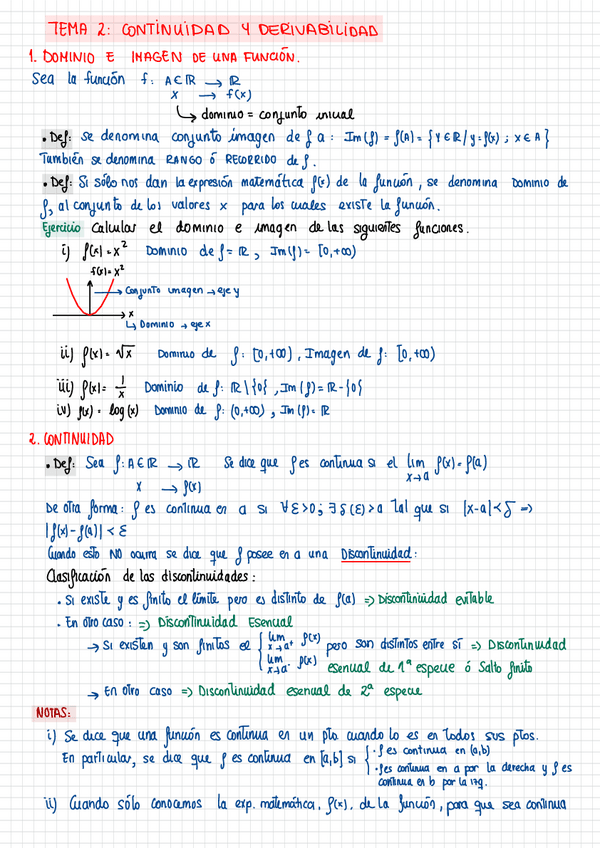 TEMA 2: CONTINUIDAD Y DERIVABILIDAD
1. DOMINIO E IMAGEN DE UNA FUNCIÓN.
Sea la función f: A⊂ℝ → ℝ
x → f(x)
↳ dominio = conjunto inicial
• Def: Se denomina conjunto imagen de f a: Im(f) = f(A) = {y∈ℝ / y=f(x) ; x∈A}
También se denomina RANGO ó RECORRIDO de f.
• Def: Si sólo nos dan la expresión matemática f(x) de la función, se denomina DOMINIO de
f, al conjunto de los valores x para los cuales existe la función.
Ejercicio Calcular el dominio e imagen de las siguientes funciones.
i) f(x) = x² Dominio de f = ℝ, Im(f) = [0,+∞)
f(x) = x²
→ Conjunto imagen → eje y
x
↳ Dominio → eje x
ii) f(x) = √x Dominio de f: [0,+∞), Imagen de f: [0,+∞)
iii) f(x) = 1/x Dominio de f: ℝ\{0}, Im(f) = ℝ-{0}
iv) f(x) = log(x) Dominio de f: (0,+∞), Im(f) = ℝ
2. CONTINUIDAD
• Def: Sea f: A∈ℝ → ℝ Se dice que f es continua si el lim x→a f(x) = f(a)
x → f(x)
De otra forma: f es continua en a si ∀ε>0; ∃δ(ε)>a Tal que si |x-a|<δ =>
|f(x)-f(a)| < ε
Cuando esto NO ocurra se dice que f posee en a una Discontinuidad:
Clasificación de las discontinuidades:
• Si existe y es finito el límite pero es distinto de f(a) => Discontinuidad evitable
• En otro caso: => Discontinuidad Esencial
→ Si existen y son finitos el { lim x→a⁺ f(x) pero son distintos entre sí => Discontinuidad
lim x→a⁻ f(x) esencial de 1ª especie ó Salto finito
→ En otro caso => Discontinuidad esencial de 2ª especie
NOTAS:
i) Se dice que una función es continua en un pto. cuando lo es en todos sus ptos.
En particular, se dice que f es continua en [a,b] si { • f es continua en (a,b)
• f es continua en a por la derecha y f es
continua en b por la izq.
ii) Cuando sólo conocemos la exp. matemática, f(x), de la función, para que sea continua